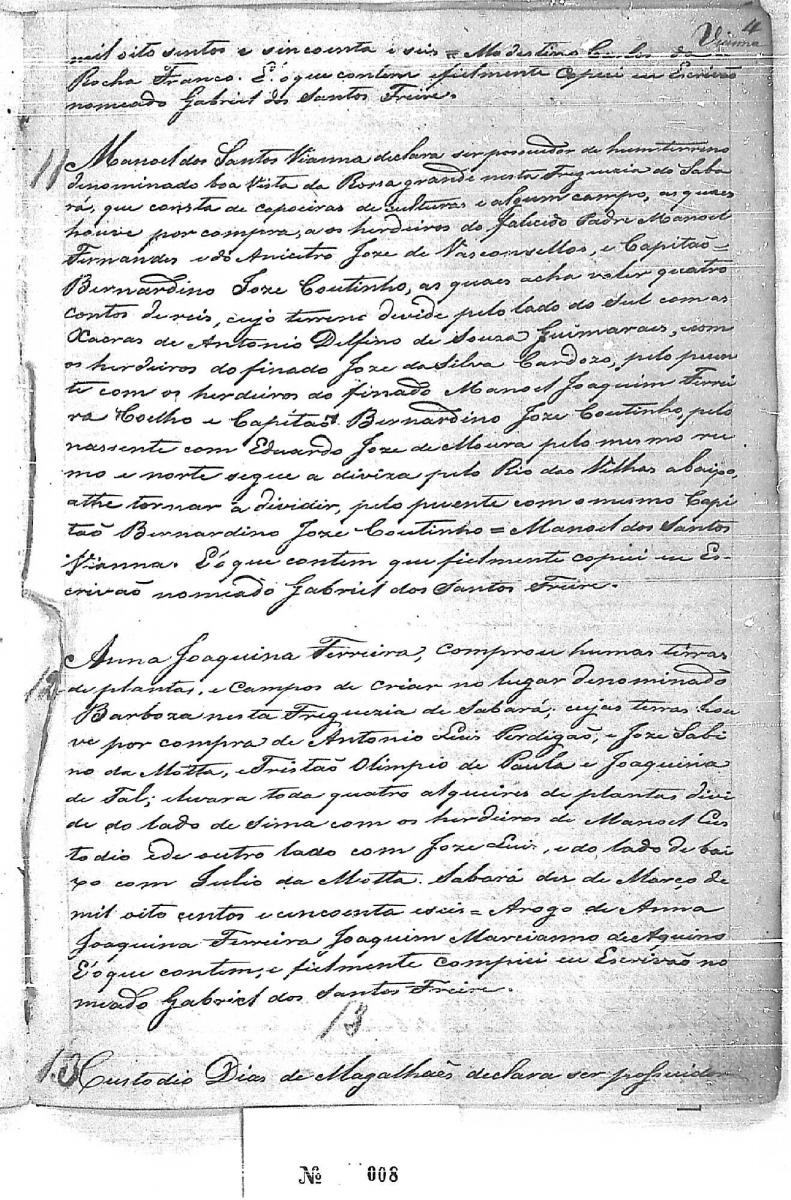 4
Vianna
mil oito sentos e sincoenta e seis = Modestino Carlos da
Rocha Franco. E' o que contem e fielmente copiei eu Escrivaõ
nomeado Gabriel dos Santos Freire.
11 Manoel dos Santos Vianna declara ser possuidor de hum terreno
denominado boa Vista da Rossa grande nesta Freguezia do Saba
rá, que consta de capoeiras de culturas e algum campo, as quaes
houve por compra, a os herdeiros do falecido Padre Manoel
Fernandes e do Anicetro Joze de Vasconsellos, e Capitaõ
Bernardino Joze Coutinho, as quaes acha valer quatro
contos de reis, cujo terreno devide pelo lado do Sul com as
Xacras de Antonio Delfino de Souza Guimaraes, e com
os herdeiros do finado Joze da Silva Cardozo, pelo puen
te com os herdeiros do finado Manoel Joaquim Ferrei
ra Coelho e Capitaõ Bernardino Joze Coutinho, pelo
nassente com Eduardo Joze de Moura pelo mesmo ru
mo e norte segue a diviza pelo Rio das Vilhas abaixo,
athe tornar a dividir, pelo puente com o mesmo Capi
taõ Bernardino Joze Coutinho = Manoel dos Santos
Vianna. E' o que contem que fielmente copiei eu Es-
crivaõ nomeado Gabriel dos Santos Freire.
12 Anna Joaquina Ferreira, comprou humas terras
de plantas, e campos de criar no lugar denominado
Barboza nesta Freguezia de Sabará; cujas terras hou
ve por compra de Antonio Luis Perdigaõ, e Joze Sabi
no da Motta, e Tristaõ Olimpio de Paula e Joaquina
de Tal; elevara toda quatro alqueires de plantas divi
de do lado de Sima com os herdeiros de Manoel Cus
todio e de outro lado com Joze Luis, e do lado de bai
xo com Julio da Motta. Sabará dez de Março de
mil oito centos e cincoenta e seis = Arogo de Anna
Joaquina Ferreira Joaquim Marcianno de Aquino
E' o que contem, e fielmente compiei eu Escrivaõ no
meado Gabriel dos Santos Freire.
13
13 Custodio Dias de Magalhaẽs declara ser possuidor
Nº 008